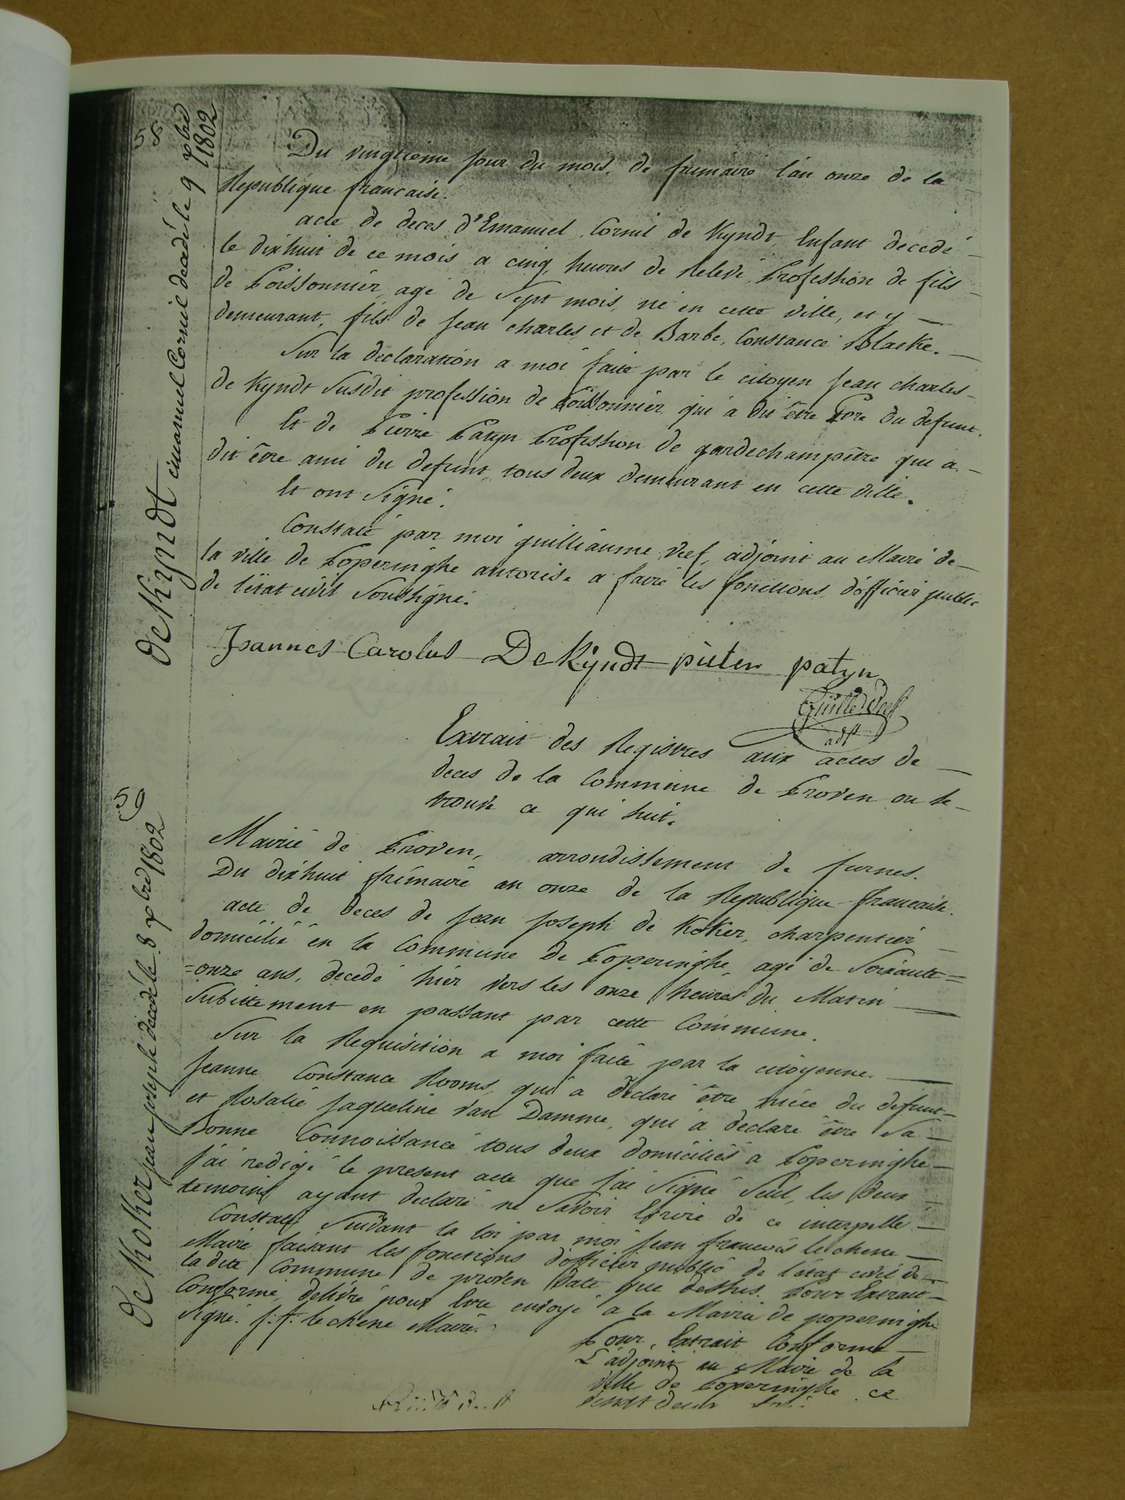 58
de Kyndt émanuel Cornil decedé le 9 xbre 1802
Du vingtieme jour du mois de frimaire l'an onze de la
Republique francaise.
acte de deces d'Emanuel Cornil de Kyndt Enfant decedé
le dixhuit de ce mois a cinq heures de Relevé, Profession de fils
de Poissonnier, agé de Sept mois, né en cette ville, et y
demeurant, fils de Jean charles et de Barbe Constance Blacke.
Sur la déclaration a moi faite par le citoyen Jean charles
de Kyndt Susdit profession de Poissonnier qui a dit être Pere du defunt.
Et de Pierre Patyn Profession de gardechampêtre qui a
dit être ami du defunt, tous deux demeurant en cette ville.
Et ont signé.
Constaté par moi guilliaume Reef, adjoint au Maire de
la ville de Poperinghe autorisé a faire les fonctions d'officier public
de l'état civil Soussigné.
Joannes Carolus De Kyndt pieter patyn
adjt
59
de Koker jean joseph decedé le 8 xbre 1802
Extrait des Registres aux actes de
deces de la Commune de Proven ou se
trouve ce qui suit.
Mairie de Proven, arrondissement de furnes.
Du dixhuit frimaire an onze de la Republique francaise.
acte de deces de Jean Joseph de Koker, charpentier
domicilié en la Commune de Poperinghe, agé de Soixante=
=onze ans, decedé hier vers les onze heures du Matin
Subittement en passant par cette Commune.
Sur la Requisition a moi faite par la citoyenne
Jeanne Constance Rooms, qui a declaré être niece du defunt
et Rosalie Jaqueline Van Damme, qui a declaré être Sa
Bonne Connoissance tous deux domiciliés a Poperinghe
J'ai redigé le present acte que j'ai Signé Seul, les deux
temoins ayant declaré ne Savoir Ecrire de ce interpellé
Constaté Suivant la loi par moi Jean francois lechene
Maire faisant les fonctions d'officier public de l'état civil de
la dite Commune de proven Date que dessus. Pour Extrait
Conforme, delivré pour être envoyé a la Mairie de poperinghe
Signé. J. f. lechene Maire.
Pour Extrait Conforme
L'adjoint au Maire de la
ville de Poperinghe ce
vingt deux